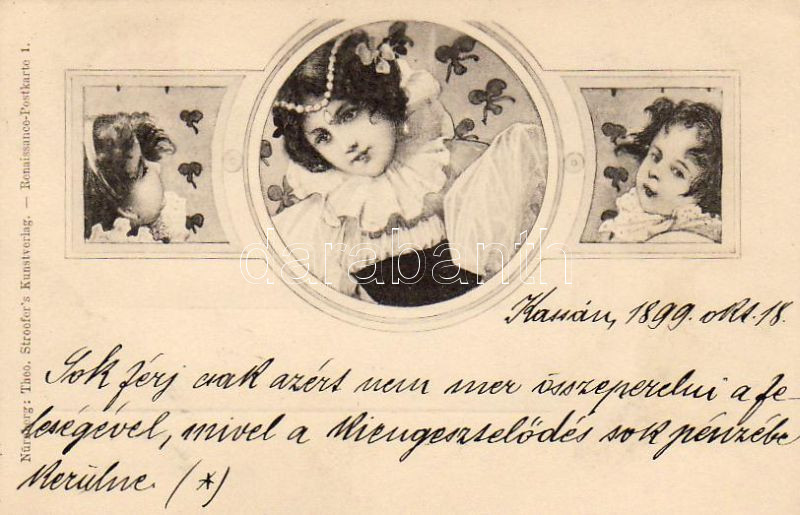 Nürnberg: Theo. Stroefer's Kunstverlag. — Renaissance-Postkarte 1.
darabanth
Kassán, 1899. okt. 18.
Sok férj csak azért nem mer összeperelni a fe-
leségével, mivel a kiengesztelődés sok pénzébe
kerülne. (*)